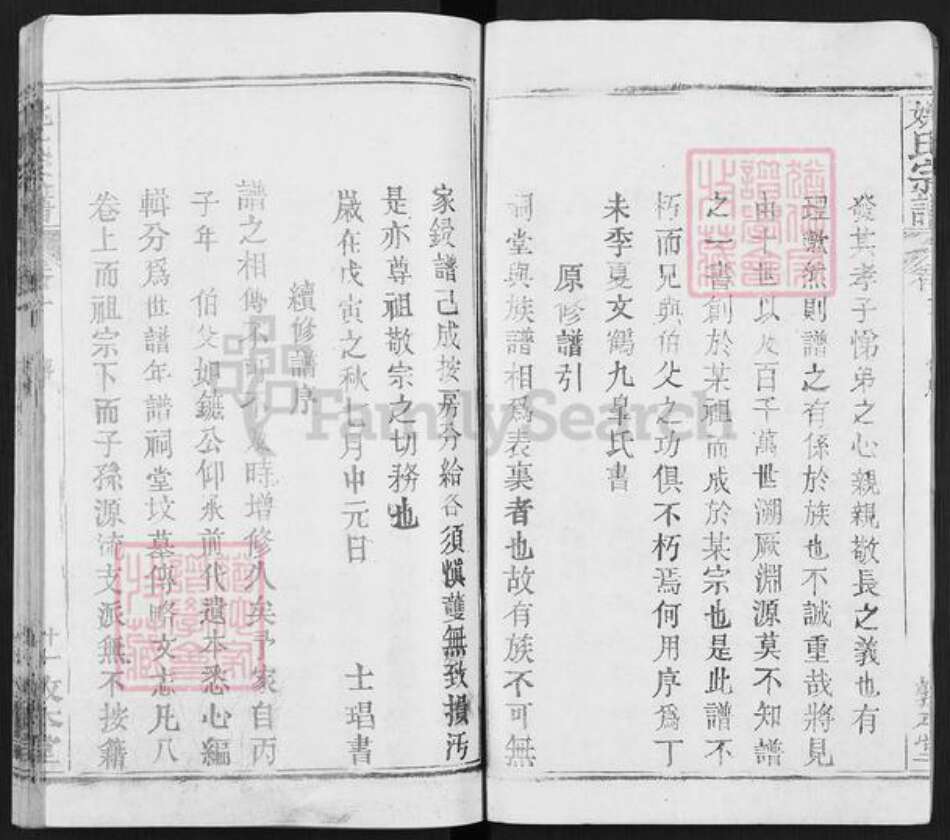 姚氏宗譜
發其孝子悌弟之心親親敬長之義也有
理歟然則譜之有係於族也不誠重哉將見
由十世以及百千萬世溯厥淵源莫不知譜
之一書創於某祖而成於某宗也是此譜不
朽而兄與伯父之功俱不朽焉何用序爲丁
未季夏文鶴九臯氏書
原修譜引
祠堂與族譜相爲表裏者也故有族不可無
家鋟譜已成按房分給各須愼護無致損汚
是亦尊祖敬宗之切務也
嵗在戊寅之秋七月中元日 士琩書
續修譜序
譜之相傳不 時增修久矣予家自丙
子年 伯父如鏡公仰承前代遺本悉心編
輯分爲世譜年譜祠堂坟墓傳略文志凡八
卷上而祖宗下而子孫源流支派無不按籍
FamilySearch